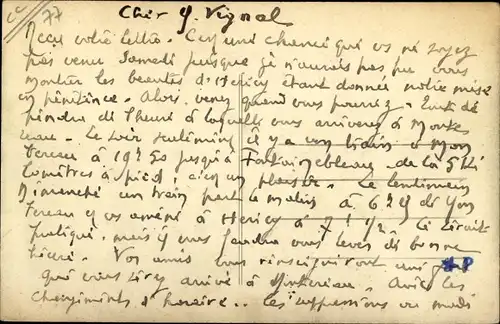 77
Cher Y. Vignal
Reçu votre lettre. C'est une chance que vs ne soyez
pas venu Samedi puisque je n'aurais pas pu vous
montrer les beautés d'Hericy étant donnée notre mise
en pénitence. Alors venez quand vous pourrez. Tout dé
pendra de l'heure à laquelle vous arriverez à Monte
reau. Le soir seulement il y a un train à Mon
tereau à 19h50 jusqu'à Fontainebleau de là 5 kilo
mètres à pied, c'est un plaisir. Le lendemain
Dimanche un train part le matin à 6h29 de Mon
tereau et vs amène à Hericy à 7h1/2. Ce serait
pratique, mais il vous faudra vous lever de bonne
heure. Vos amis vous renseigneront une fois
que vous serez arrivé à Montereau. Avec les
changements d'horaire.. les suppressions ou modi